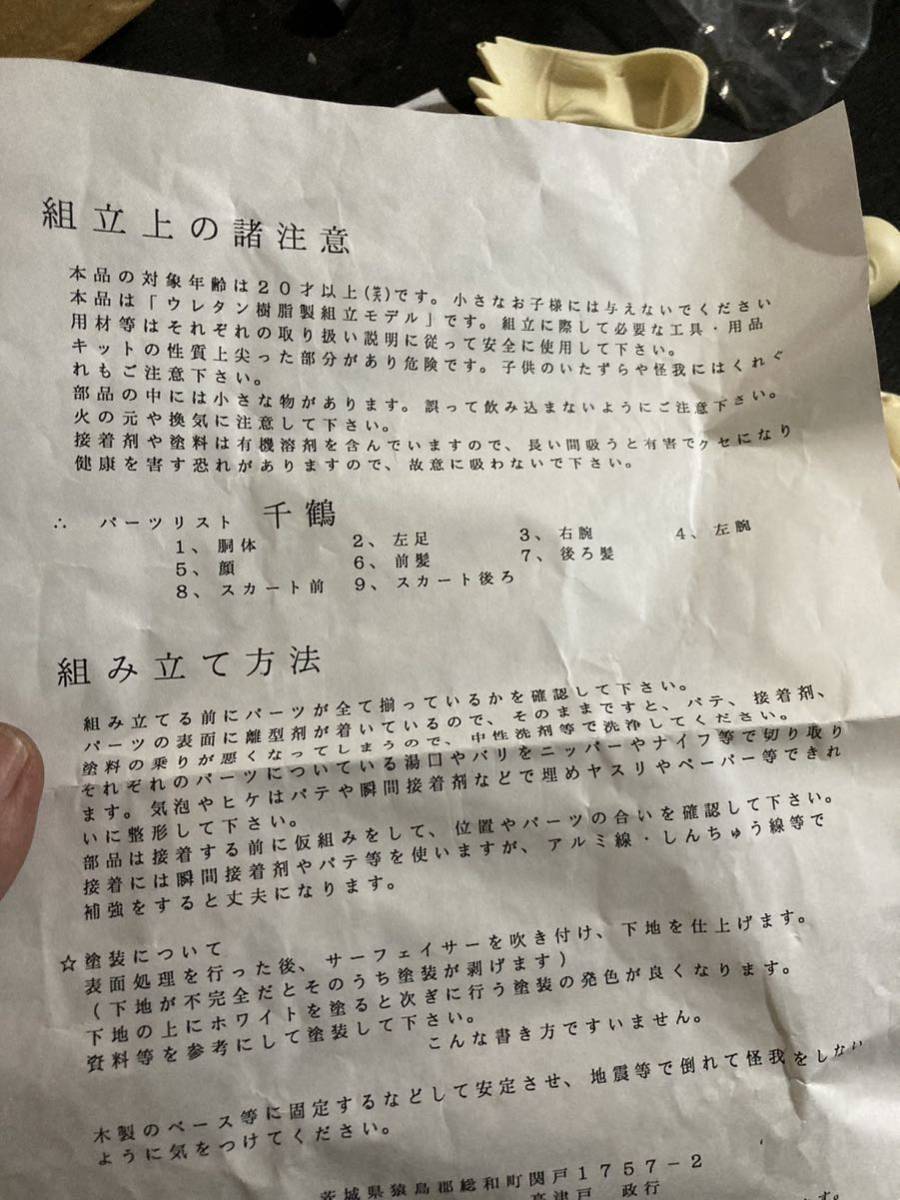 組立上の諸注意
本品の対象年齢は２０才以上(笑)です。小さなお子様には与えないでください
本品は「ウレタン樹脂製組立モデル」です。組立に際して必要な工具・用品
用材等はそれぞれの取り扱い説明に従って安全に使用して下さい。
キットの性質上尖った部分があり危険です。子供のいたずらや怪我にはくれぐ
れもご注意下さい。
部品の中には小さな物があります。誤って飲み込まないようにご注意下さい。
火の元や換気に注意して下さい。
接着剤や塗料は有機溶剤を含んでいますので、長い間吸うと有害でクセになり
健康を害す恐れがありますので、故意に吸わないで下さい。
∴ パーツリスト 千鶴
１、胴体 ２、左足 ３、右腕 ４、左腕
５、顔 ６、前髪 ７、後ろ髪
８、スカート前 ９、スカート後ろ
組み立て方法
組み立てる前にパーツが全て揃っているかを確認して下さい。
パーツの表面に離型剤が着いているので、そのままですと、パテ、接着剤、
塗料の乗りが悪くなってしまうので、中性洗剤等で洗浄してください。
それぞれのパーツについている湯口やバリをニッパーやナイフ等で切り取り
ます。気泡やヒケはパテや瞬間接着剤などで埋めヤスリやペーパー等できれ
いに整形して下さい。
部品は接着する前に仮組みをして、位置やパーツの合いを確認して下さい。
接着には瞬間接着剤やパテ等を使いますが、アルミ線・しんちゅう線等で
補強をすると丈夫になります。
☆塗装について
表面処理を行った後、サーフェイサーを吹き付け、下地を仕上げます。
（下地が不完全だとそのうち塗装が剥げます）
下地の上にホワイトを塗ると次ぎに行う塗装の発色が良くなります。
資料等を参考にして塗装して下さい。
こんな書き方ですいません。
木製のベース等に固定するなどして安定させ、地震等で倒れて怪我をしない
ように気をつけてください。
茨城県猿島郡総和町関戸１７５７－２
高津戸 政行
す。